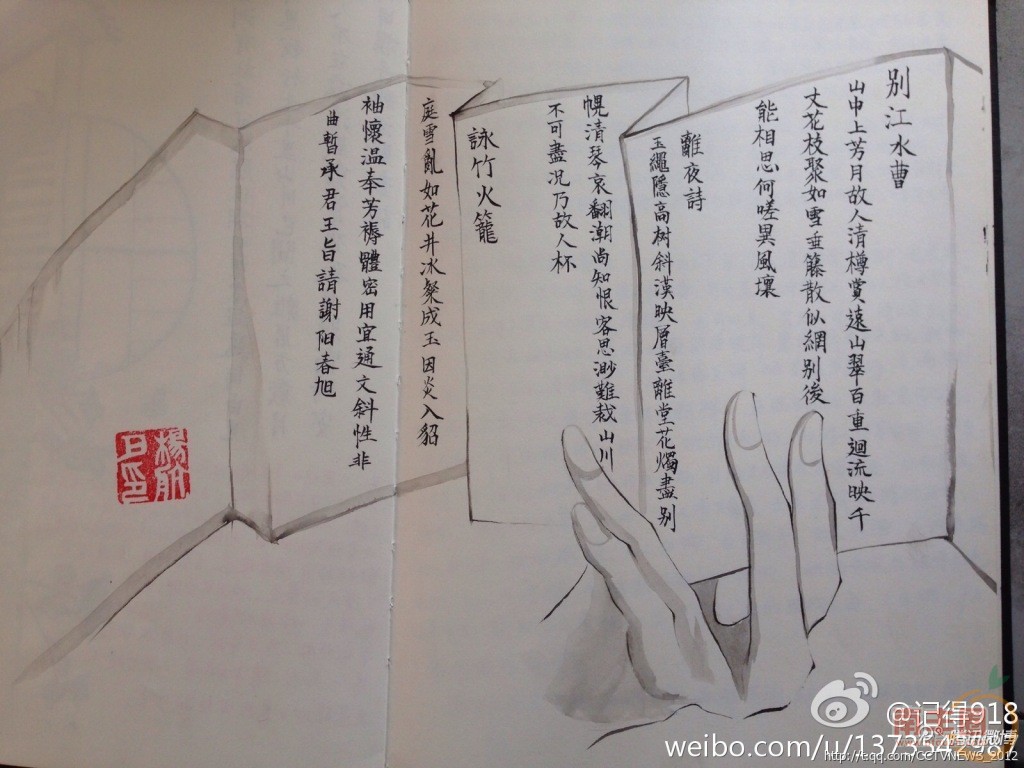 别江水曹
山中上芳月故人清樽賞遠山翠百重迴流映千
丈花枝聚如雪垂藤散似網别後
能相思何嗟異風壤
離夜詩
玉繩隱高树斜漢映層臺離堂花燭盡别
幌清琴哀翻潮尚知恨客思渺難裁山川
不可盡况乃故人杯
詠竹火籠
庭雪亂如花井冰粲成玉因炎入貂
袖懷温奉芳褥體密用宜通文斜性非
曲暫承君王旨請謝阳春旭
@记得918
weibo.com/u/1373542967
http://t.qq.com/CCTVNEWS_2012
腾讯微博